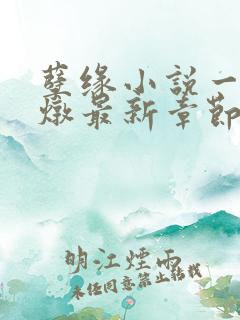 孽缘小说一
燉最新章節
明江煙雨
未经同意禁止转载